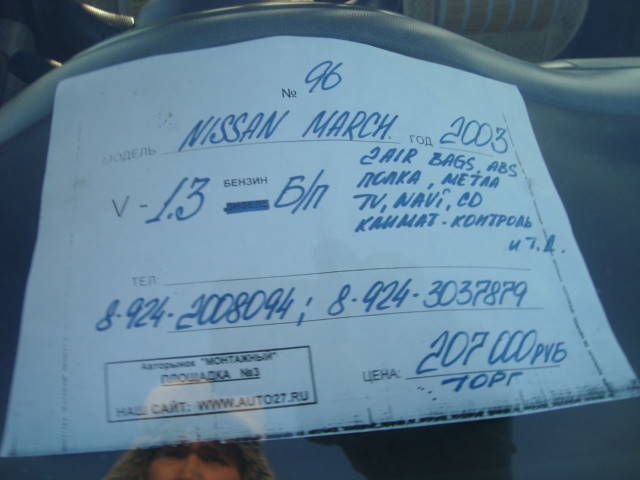 № 96
МОДЕЛЬ NISSAN MARCH ГОД 2003
V - 1.3 БЕНЗИН Б/П
2AIR BAGS, ABS
ПОЛКА, МЕТЛА
TV, NAVI, CD
КЛИМАТ-КОНТРОЛЬ
И Т.Д.
ТЕЛ:
8-924-2008094; 8-924-3037879
Авторынок "МОНТАЖНЫЙ"
ПЛОЩАДКА №3
НАШ САЙТ: WWW.AUTO27.RU
ЦЕНА: 207 000 РУБ
ТОРГ